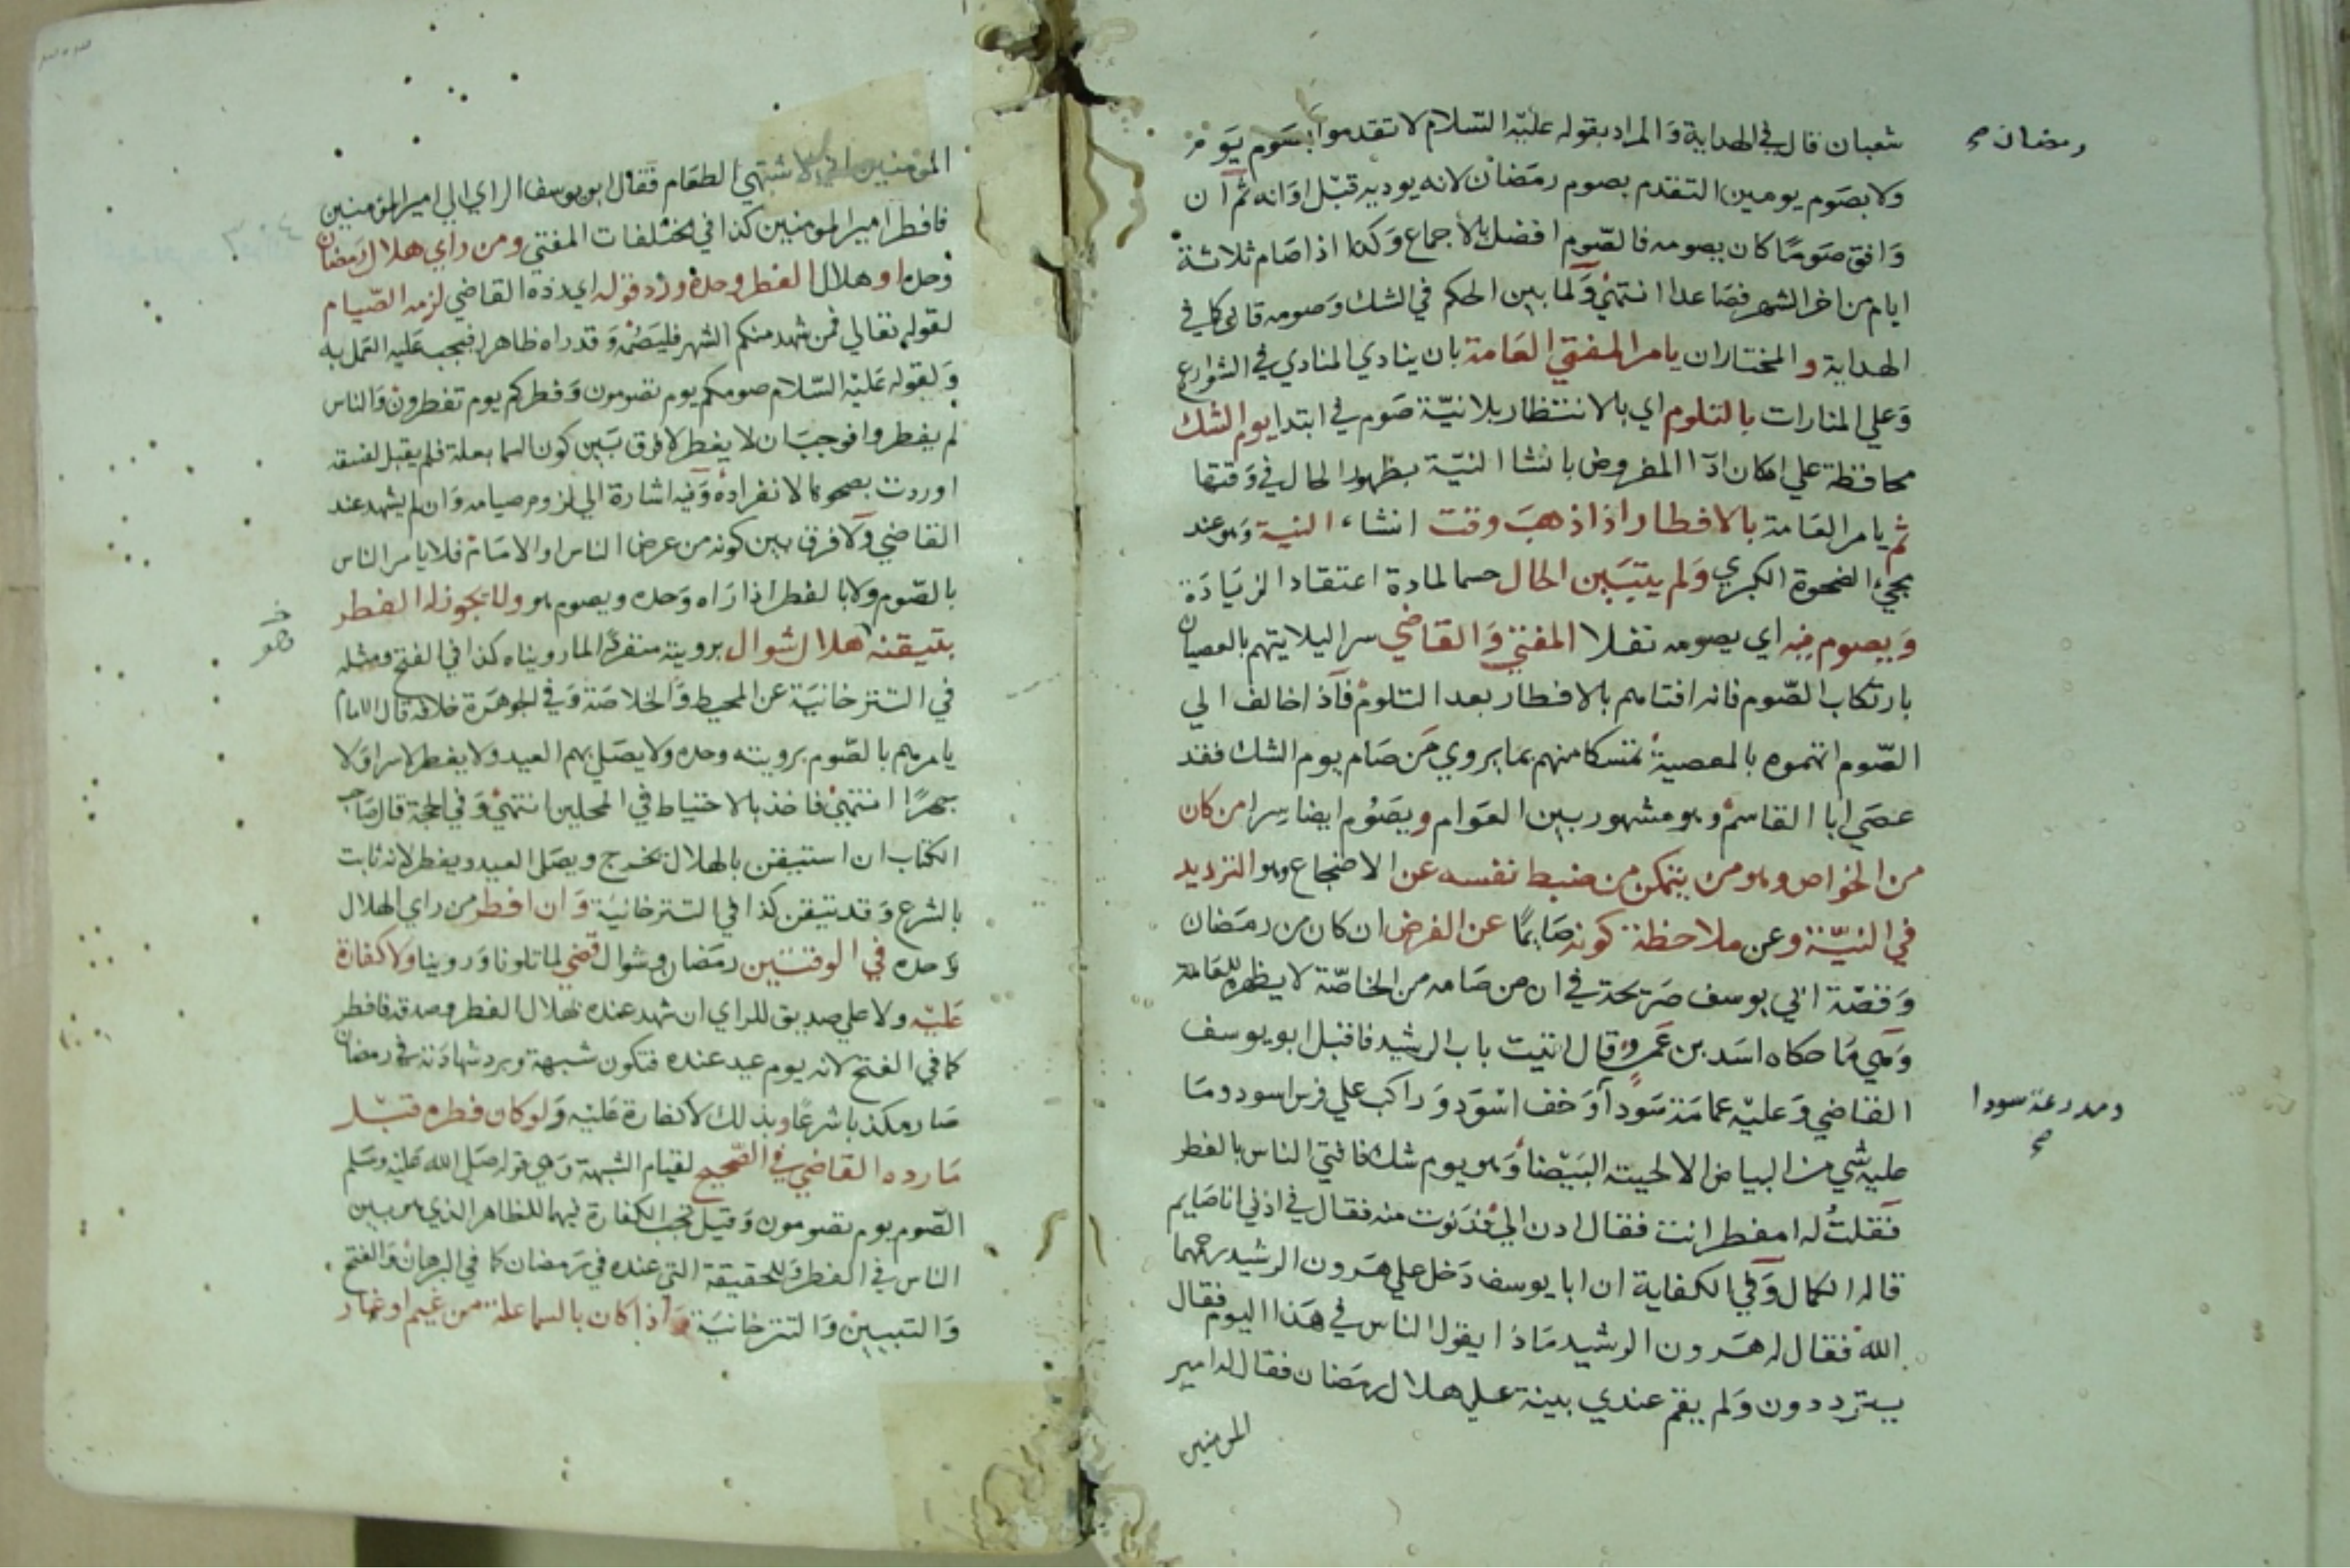 شعبان قال في الهداية والمراد بقوله عليه السلام لا تقدموا بصوم يوم
رمضان صح
ولا بصوم يومين التقدم بصوم رمضان لانه يوديه قبل اوانه ثم ان
وافق صوما كان يصومه فالصوم افضل بالاجماع وكذا اذا صام ثلاثة
ايام من اخر الشهر فصاعدا انتهي ولما بين الحكم في الشك وصومه قال كما في
الهداية والمختار ان يامر المفتي العامة بان ينادي المنادي في الشوارع
وعلي المنارات بالتلوم اي بالانتظار بلا نية صوم في ابتدا يوم الشك
محافظة علي امكان ادآ المفروض بانشا النية بظهور الحال في وقتها
ثم يامر العامة بالافطار اذا ذهب وقت انشاء النية وهو عند
مجيء الضحوة الكبري ولم يتبين الحال حسما لمادة اعتقاد الزيادة
ويصوم فيه اي يصومه نفلا المفتي والقاضي سرا ليلا يتهم بالعصيان
بارتكاب الصوم فانه افتاهم بالافطار بعد التلوم فاذا خالف الي
الصوم اتهموه بالمعصية تمسكا منهم بما يروي من صام يوم الشك فقد
عصي ابا القاسم وهو مشهور بين العوام ويصوم ايضا سرا من كان
من الخواص وهو من يتمكن من ضبط نفسه عن الاضجاع وهو الترديد
في النية وعن ملاحظة كونه صايما عن الفرض ان كان من رمضان
وقصة ابي يوسف صريحة في ان من صامه من الخاصة لا يظهره للعامة
وهي ما حكاه اسد بن عمرو قال اتيت باب الرشيد فاقبل ابو يوسف
القاضي وعليه عمامة سودآ وخف اسود وراكب علي فرس اسود وما
ومدرعة سودا
صح
عليه شي من البياض الا لحيته البيضا وهو يوم شك فافتي الناس بالفطر
فقلت له امفطر انت فقال ادن الي فدنوت منه فقال في اذني انا صايم
قاله الكمال وفي الكفاية ان ابا يوسف دخل علي هرون الرشيد رحمهما
الله فقال له هرون الرشيد ماذا يقول الناس في هذا اليوم فقال
يترددون ولم يقم عندي بينة علي هلال رمضان فقال له امير
المومنين
المومنين اني لاشتهي الطعام فقال ابو يوسف الراي الي امير المومنين
فافطر امير المومنين كذا في مختلفات المفتي ومن راي هلال رمضان
وحده او هلال الفطر وحده ورد قوله اي رده القاضي لزمه الصيام
لقوله تعالي فمن شهد منكم الشهر فليصمه وقد راه ظاهرا فيجب عليه العمل به
ولقوله عليه السلام صومكم يوم تصومون وفطركم يوم تفطرون والناس
لم يفطروا فوجب ان لا يفطر لا فرق بين كون السما بعلة فلم يقبل لفسقه
او ردت بصحوها لانفراده وفيه اشارة الي لزوم صيامه وان لم يشهد عند
القاضي ولا فرق بين كونه من عرض الناس او الامام فلا يامر الناس
بالصوم ولا بالفطر اذا راه وحده ويصوم هو ولا يجوز له الفطر
بتيقنه هلال شوال برويته منفردا لما رويناه كذا في الفتح ومثله
في التترخانية عن المحيط والخلاصة وفي الجوهرة خلافه قال الامام
يامرهم بالصوم برويته وحده ولا يصلي بهم العيد ولا يفطر لا سرا ولا
جهرا انتهي فاخذ بالاحتياط في المحلين انتهي وفي الحجة قال صاحب
الكتاب ان استيقن بالهلال يخرج ويصلي العيد ويفطر لانه ثابت
بالشرع وقد تيقن كذا في التترخانية وان افطر من راي الهلال
وحده في الوقتين رمضان وشوال قضي لما تلونا وروينا ولا كفارة
عليه ولا علي صديق للراي ان شهد عنده بهلال الفطر وصدقه فافطر
كما في الفتح لانه يوم عيد عنده فتكون شبهة وبرد شهادته في رمضان
صار مكذبا شرعا وبذلك لا كفارة عليه ولو كان فطره قبل
ما رده القاضي في الصحيح لقيام الشبهة وهي قوله صلي الله عليه وسلم
الصوم يوم تصومون وقيل تجب الكفارة فيهما للظاهر الذي هو بين
الناس في الفطر وللحقيقة التي عنده في رمضان كما في البرهان والفتح
والتبيين والتترخانية واذا كان بالسما علة من غيم او غبار